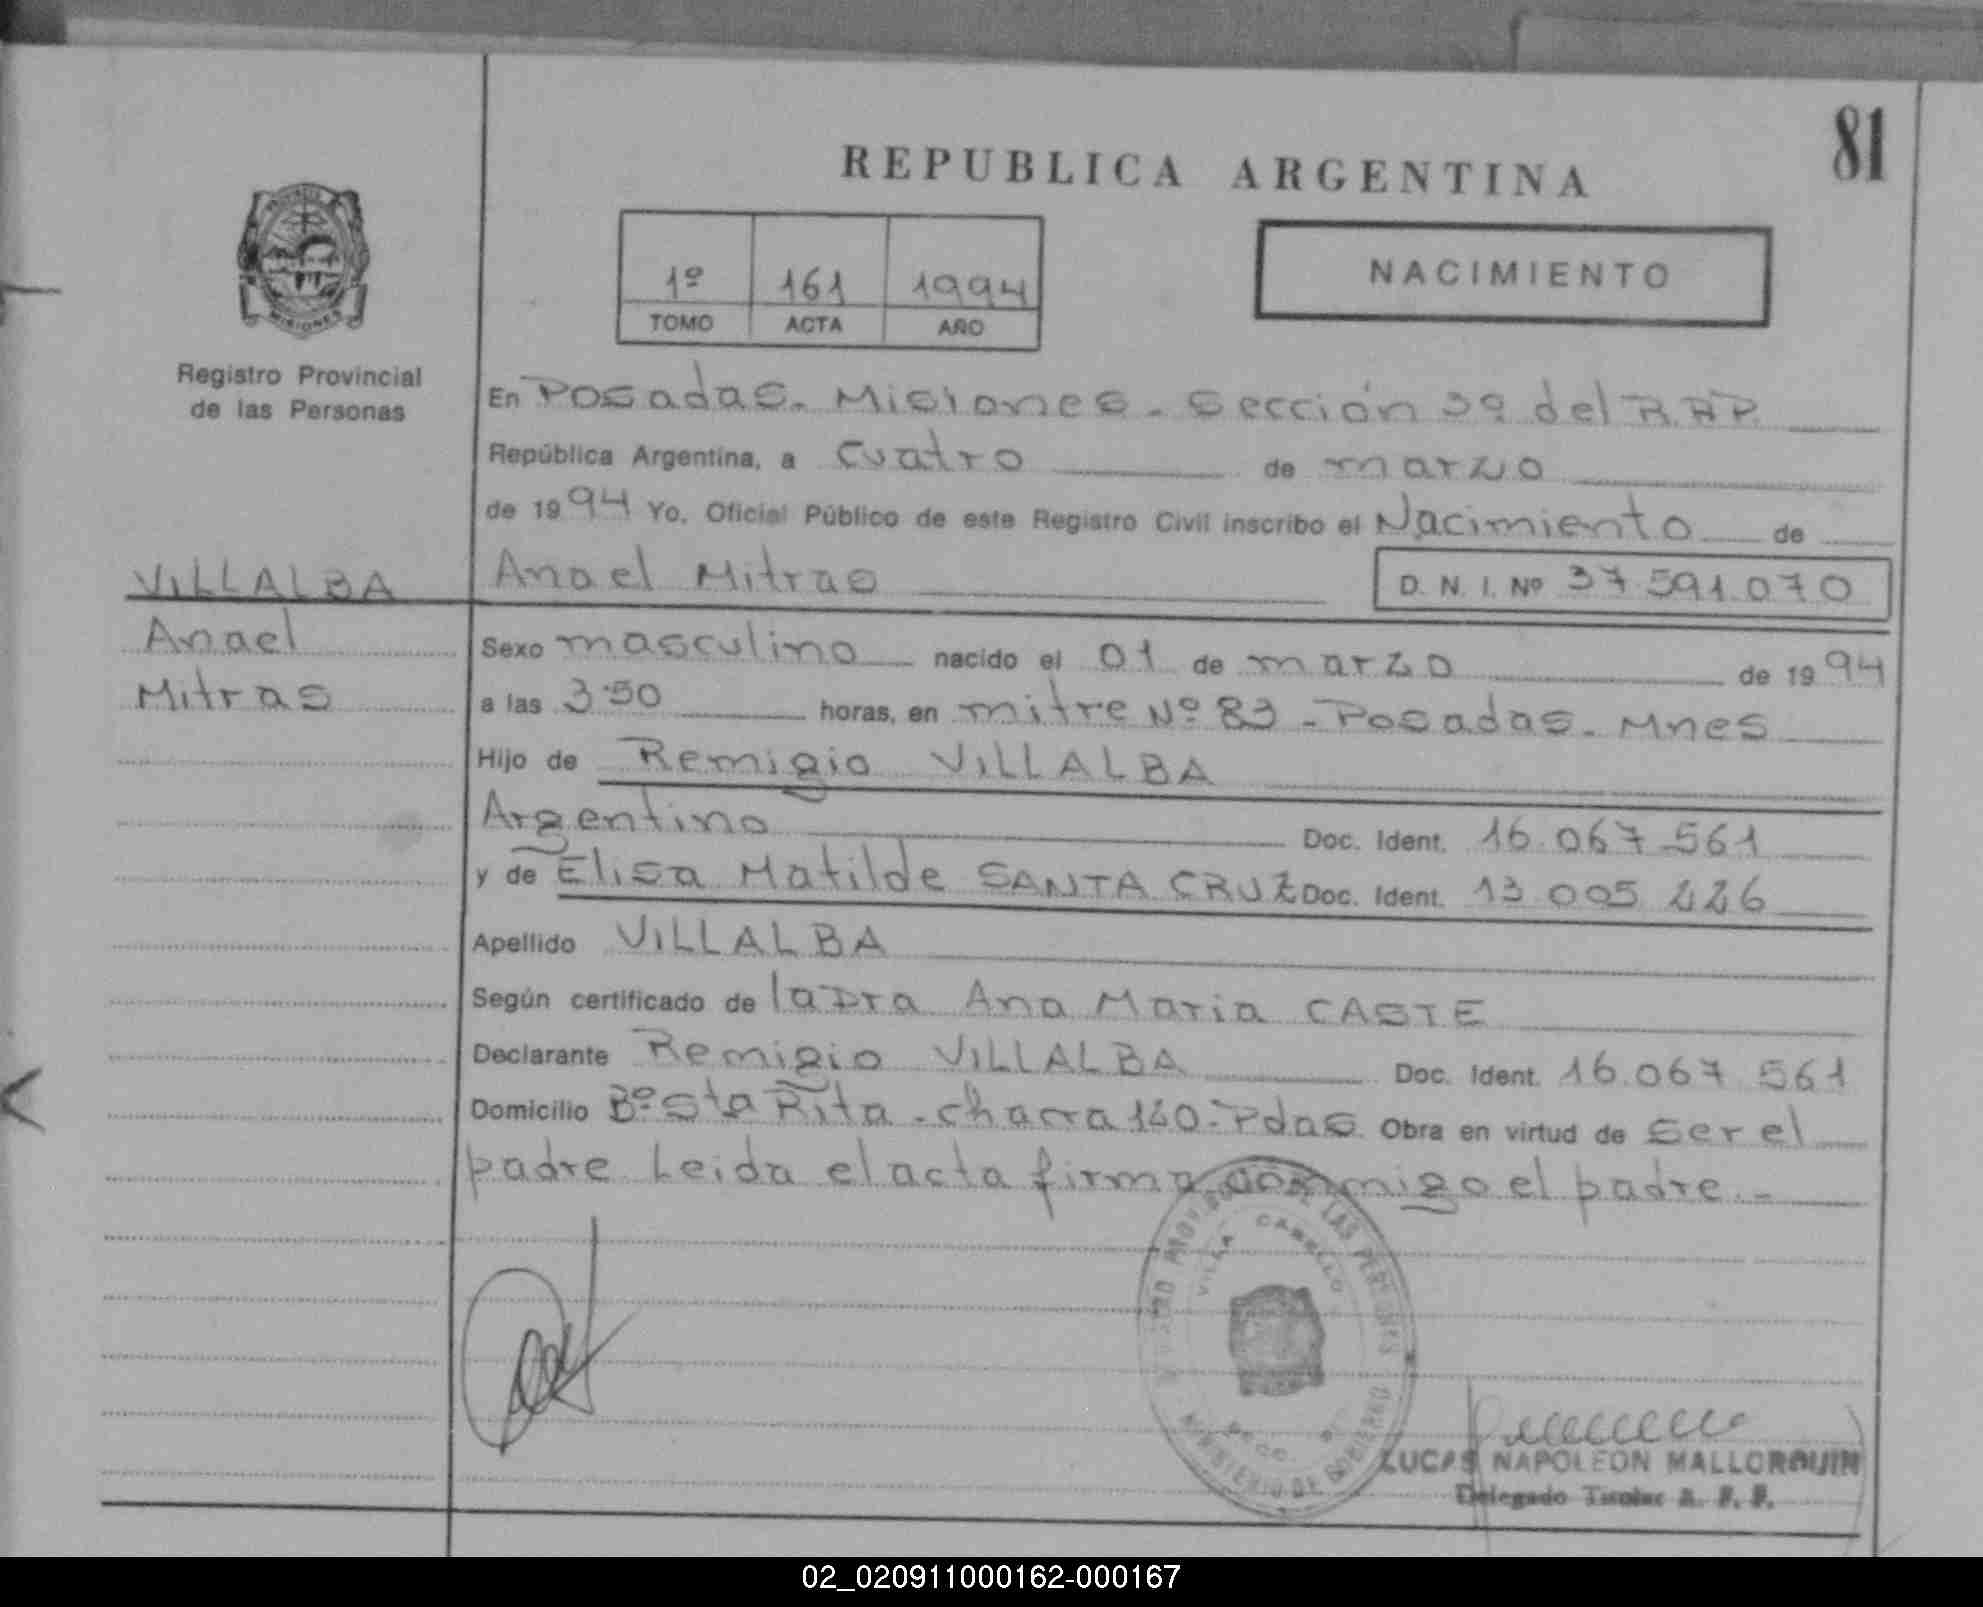 81
REPUBLICA ARGENTINA
MISIONES
Registro Provincial
de las Personas
1º 161 1994
TOMO ACTA AÑO
NACIMIENTO
En Posadas. Misiones. Sección 3º del R.R.P.
República Argentina, a Cuatro de marzo
de 1994 Yo, Oficial Público de este Registro Civil inscribo el Nacimiento de
Anael Mitras D. N. I. Nº 37.591.070
VILLALBA
Anael
Mitras
Sexo masculino nacido el 01 de marzo de 1994
a las 3:50 horas, en mitre Nº 83 - Posadas. Mnes
Hijo de Remigio VILLALBA
Argentino Doc. Ident. 16.067.561
y de Elisa Matilde SANTA CRUZ Doc. Ident. 13.005.226
Apellido VILLALBA
Según certificado de la Dra Ana Maria CASTE
Declarante Remigio VILLALBA Doc. Ident. 16.067.561
Domicilio Bº Sta Rita - chacra 140 - Pdas Obra en virtud de Ser el
padre Leida el acta firma conmigo el padre. -
REGISTRO PROVINCIAL DE LAS PERSONAS
VILLA CABELLO
MINISTERIO DE GOBIERNO
LUCAS NAPOLEON MALLORQUIN
Delegado Titular R. P. P.
02_020911000162-000167